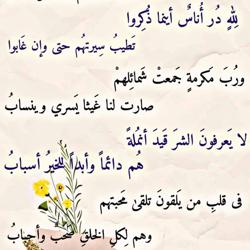 لِلهِ دُر أُناسٌ أينما ذُكِروا
تَطيبُ سِيرتهُم حتى وإن غَابوا
ورُبَ مَكرمةٍ جَمعتْ شَمائلِهمْ
صارت لنا غيثا يَسري وينسابُ
لا يَعرفونَ الشرَ قَيدَ أنْملةً
هُم دائماً وأبداً للخيرُ أسبابُ
فى قلبِ من يَلقونَ تلقىٰ محبتهم
وهم لكلِ الخلقِ صَحب وأحبابُ